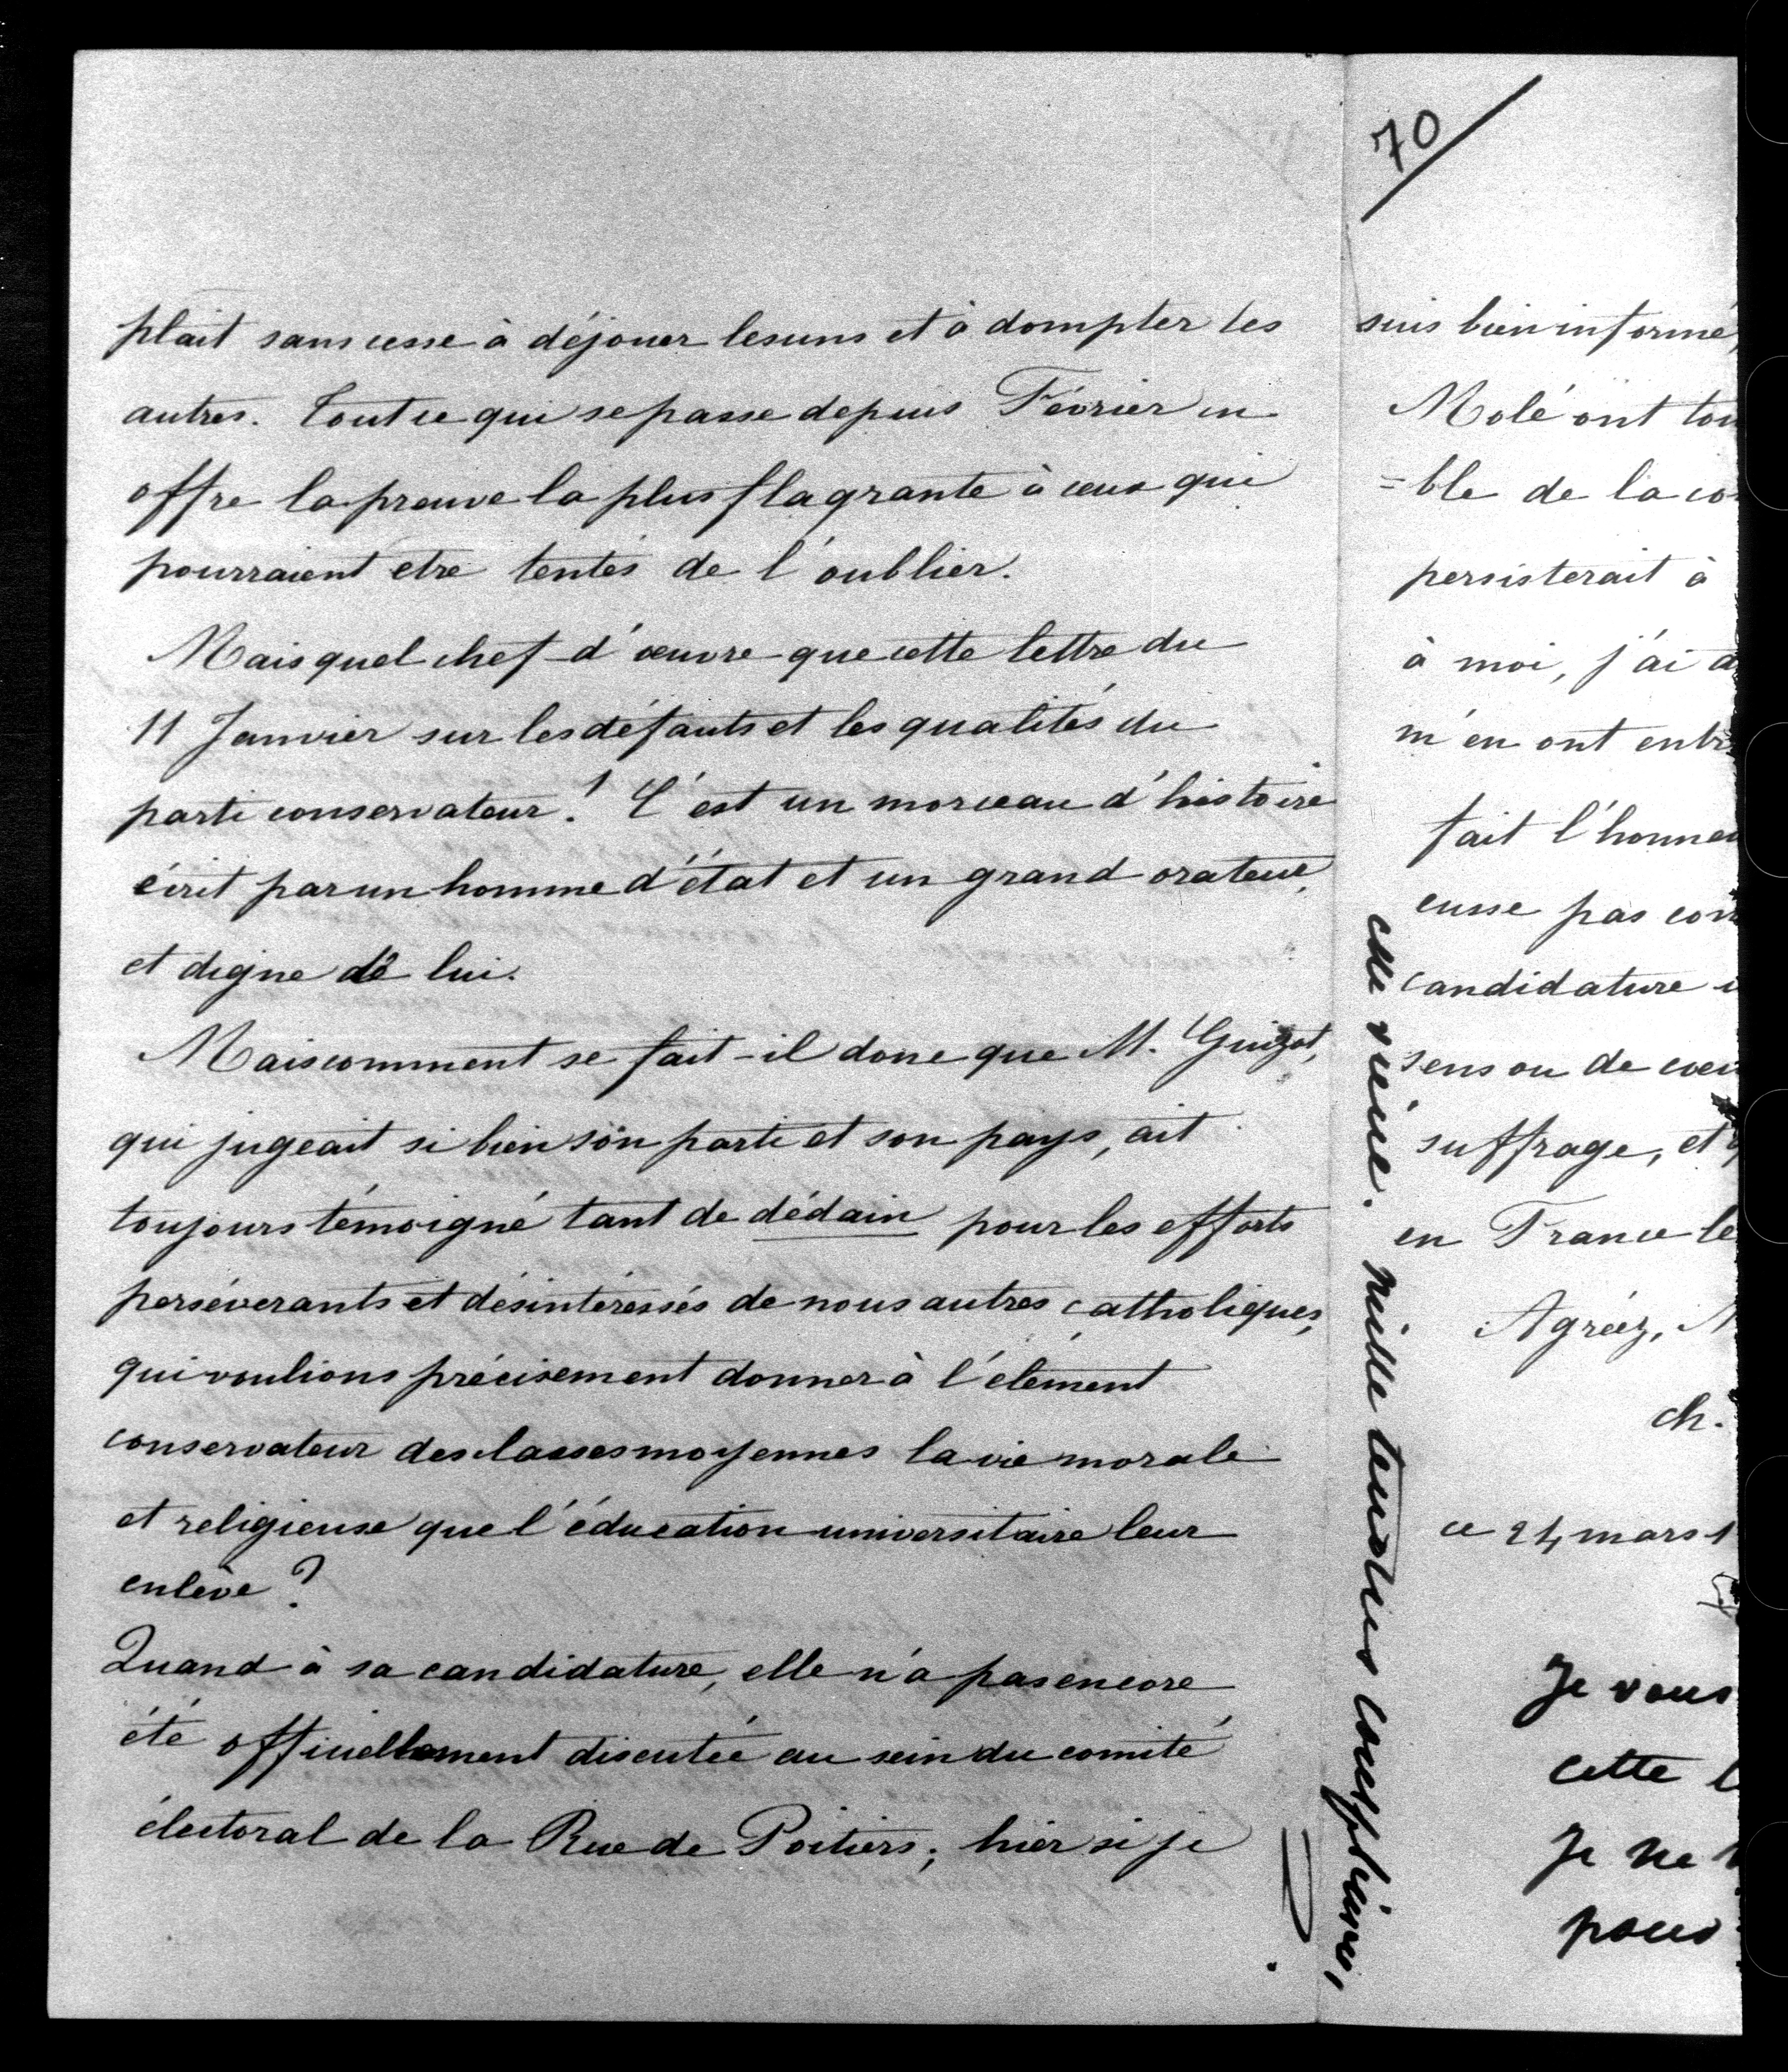 plait sans cesse à déjouer les uns et à dompter les
autres. Tout ce qui se passe depuis Février en
offre la preuve la plus flagrante à ceux qui
pourraient etre tentés de l'oublier.
Mais quel chef-d'œuvre que cette lettre du
11 Janvier sur les défauts et les qualités du
parti conservateur! C'est un morceau d'histoire
écrit par un homme d'état et un grand orateur,
et digne de lui.
Mais comment se fait-il donc que M. Guizot,
qui jugeait si bien son parti et son pays, ait
toujours témoigné tant de dédain pour les efforts
persévérants et désintéressés de nous autres catholiques,
qui voulions précisement donner à l'élément
conservateur des classes moyennes la vie morale
et religieuse que l'éducation universitaire leur
enlève?
Quand à sa candidature, elle n'a pas encore
été officiellement discutée au sein du comité
électoral de la Rue de Poitiers; hier si je
70
suis bien informé,
Molé ont tou
=ble de la co
persisterait à
à moi, j'ai
m'en ont entr
fait l'honne
eusse pas con
candidature
sens ou de coeu
suffrage, et
en France le
Agréez,
ch.
ce 24 mars 1
Je vous
cette l
Je ne
pour
mille tendres